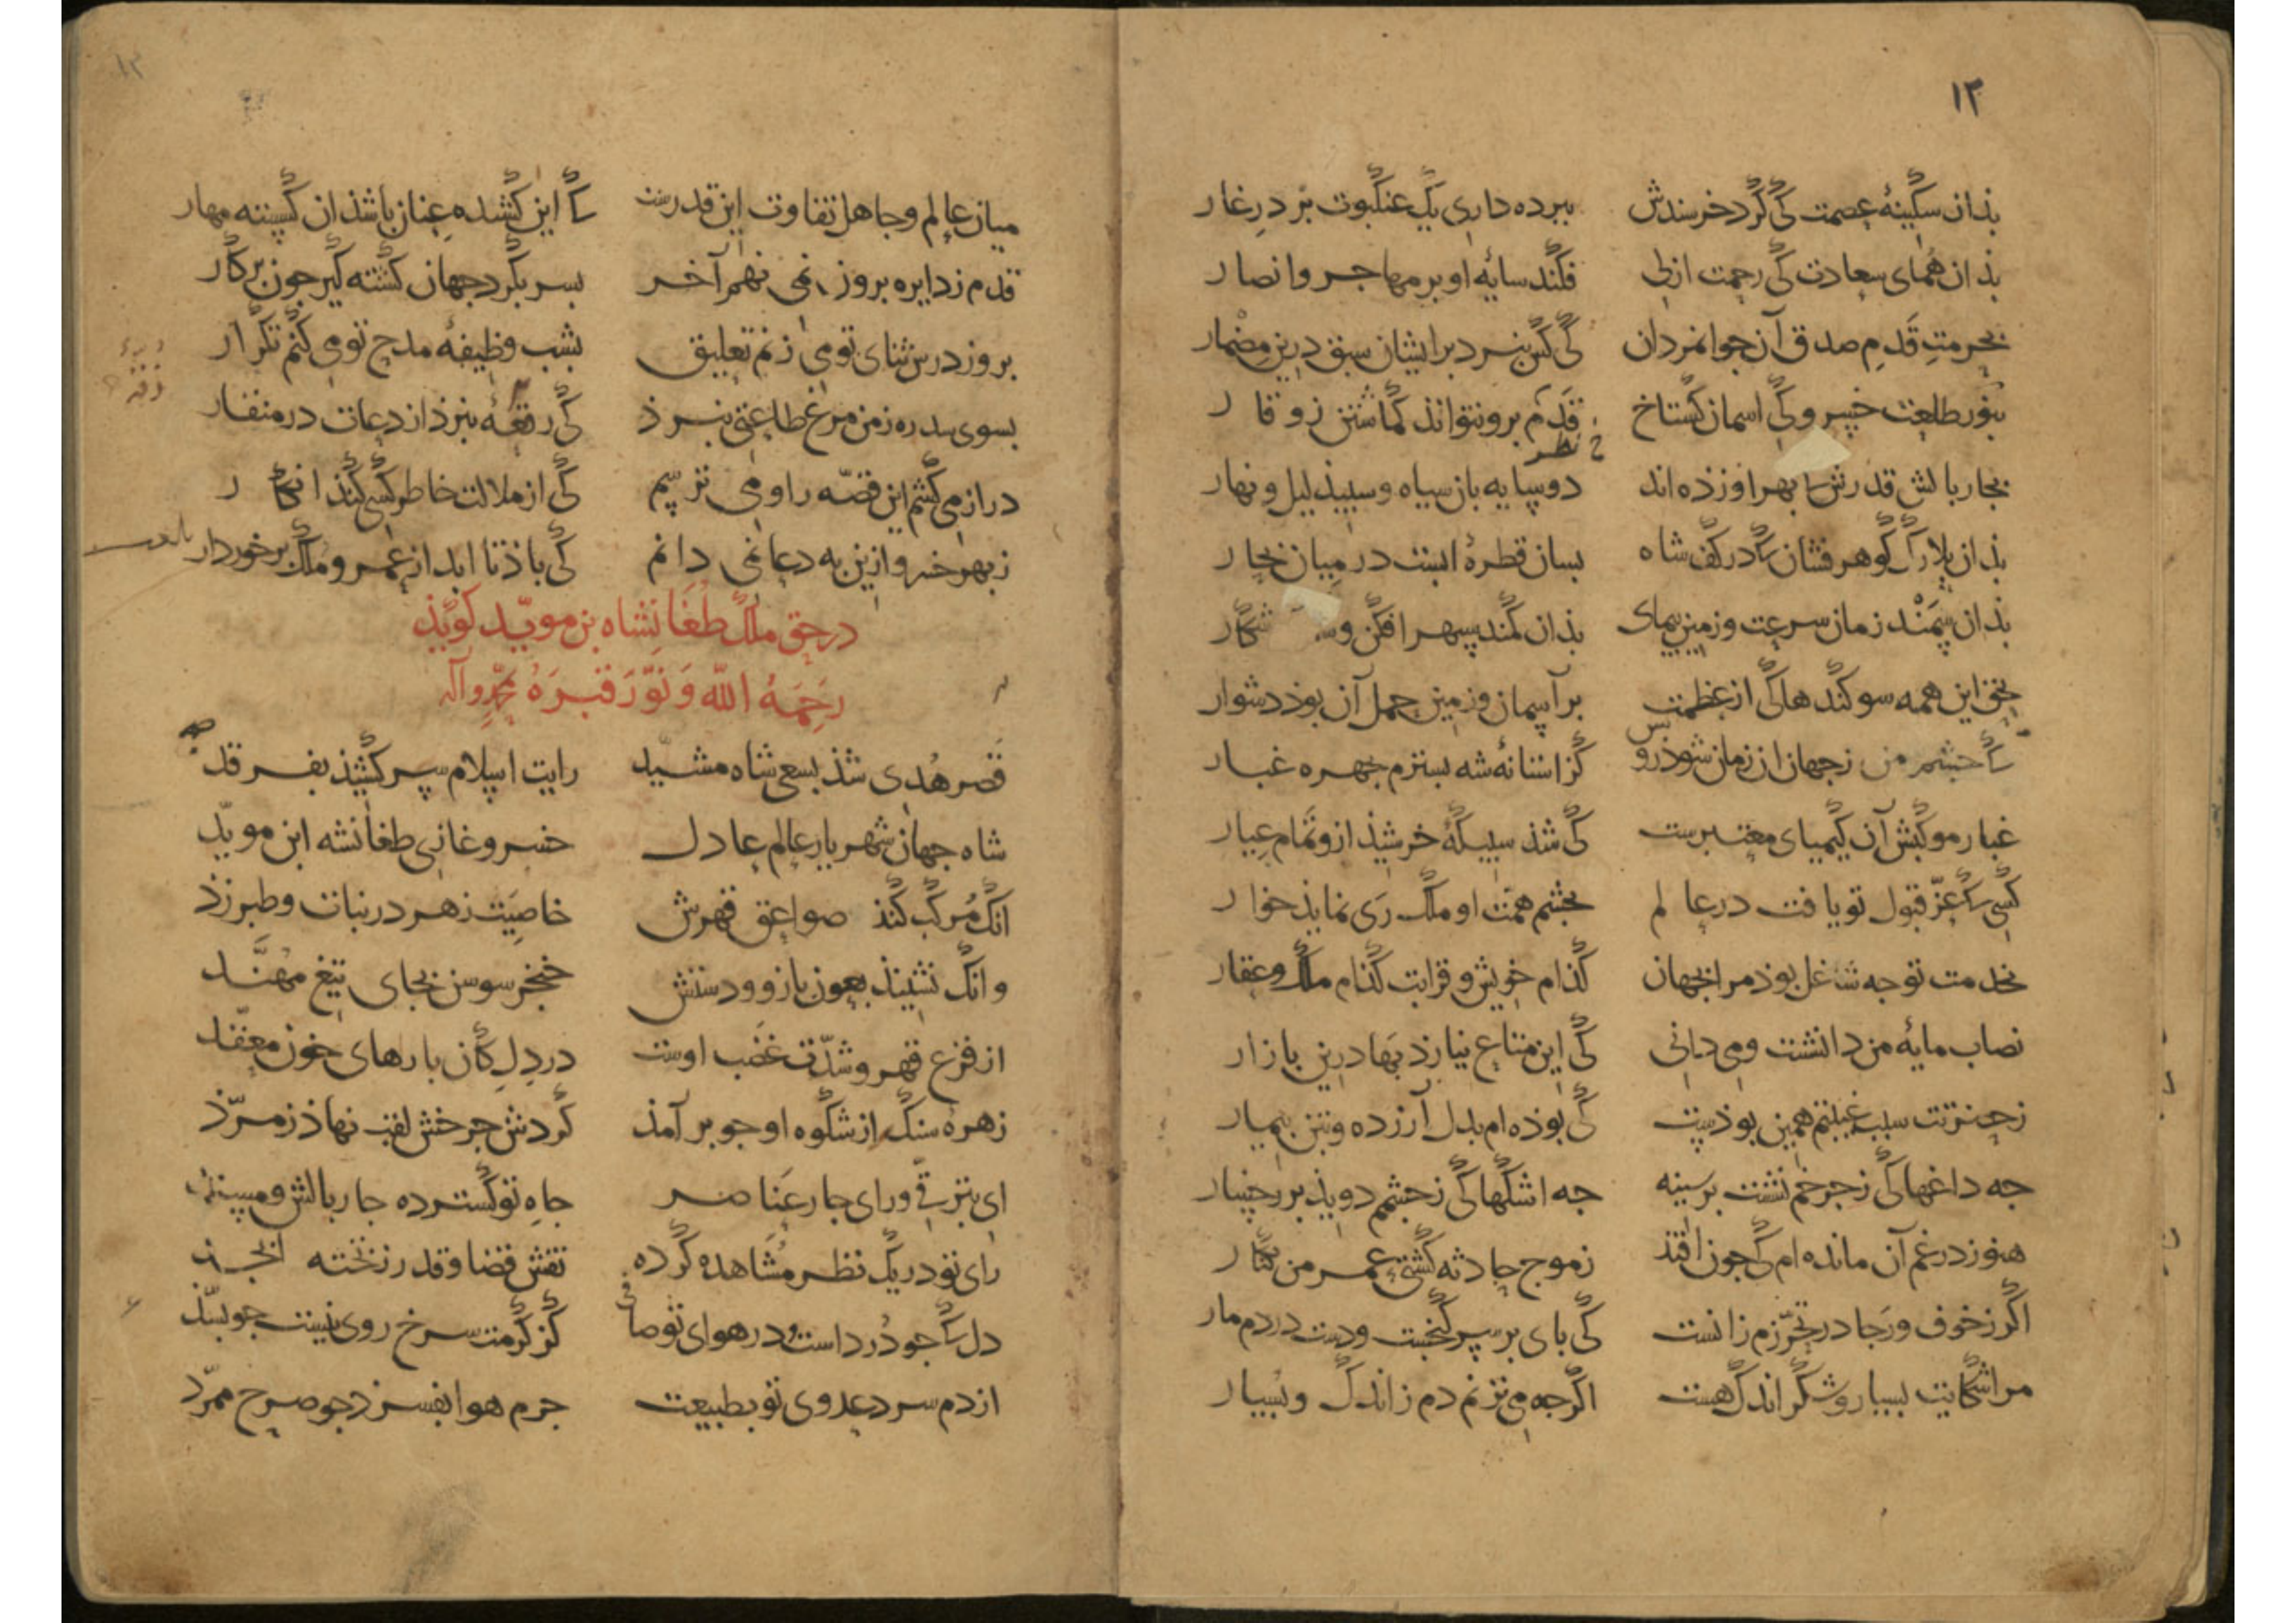 ١٢
بذان سکینهٔ عصمت کی کرد خرسندش ببرده داری یک عنکبوت بر در غار
بذان همای سعادت کی رحمت ازلی فکند سایهٔ او بر مهاجر و انصار
بحرمت قدم صدق آن جوانمردان کی کس نبرد بر ایشان سبق درین مضمار
بنور طلعت خسرو کی اسمان کستاخ قدم برو نتواند کماشتن ز وقار
نظر
بجار بالش قدرش بهر او زده اند دو سایه باز سیاه و سبیذ لیل و نهار
بذان بلارک کوهر فشان که در کف شاه بسان قطرهٔ ابست در میان بحار
بذان سمند زمان سرعت و زمین بیمای بذان کمند سپهر افکن و شکار
بحق این همه سوکندها کی از عظمت بر آسمان و زمین حمل آن بوذ دشوار
که حشم من زجهان ان زمان شوذ رو کز استانهٔ شه بسترم جهره غبار
بس
غبار موکبش آن کیمیای معتبرست کی شذ سبیکهٔ خرشیذ ازو تمام عیار
کسی که عز قبول تو یافت در عالم بجشم همت او ملک ری نمایذ خوار
بخدمت تو جه شاغل بوذ مرا بجهان کذام خویش و قرابت کذام ملک و عقار
نصاب مایهٔ من دانشست و می دانی کی این متاع نیارذ بها درین بازار
زحضرتت سبب غیبتم همین بوذست کی بوذه ام بدل آزرده و بتن بیمار
جه داغها کی زجرخم نشست بر سینه جه اشکها کی زجشمم دویذ بر رخسار
هنوز در غم آن مانده ام کی جون افتذ زموج حادثه کشتی عمر من بکنار
اکر زخوف و رجا در تحرزم زانست کی بای بر سر کنجست و دست در دم مار
مرا شکایت بسیار و شکر اندک هست اکرجه می نزنم دم ز اندک و بسیار
١٢
میان عالم و جاهل تفاوت این قدرست که این کشیده عنان باشذ ان کسسته مهار
قدم ز دایره بروز نمی نهم آخر بسر بکرد جهان کشته کیر جون برکار
بروز درس ثنای تو می زنم تعلیق بشب وظیفهٔ مدح تو می کنم تکرار
بسوی سدره ز من مرغ طاعتی نبرذ کی رقعهٔ نبرذ از دعات در منقار
دراز می کشم این قصه را و می ترسم کی از ملالت خاطر کسی کند انکار
زبهر خسرو ازین به دعا نمی دانم کی باذ تا ابد از عمر و ملک برخوردار
در حق ملک طغانشاه بن موید کویذ
رحمه الله و نور قبره بمحمد وآله
قصر هدی شذ بسعی شاه مشید رایت اسلام سر کشیذ بفرقد
شاه جهان شهریار عالم عادل خسرو غازی طغانشه ابن موید
انک مرکب کنذ صواعق قهرش خاصیت زهر در نبات و طبرزذ
وانک نشیند بعون بازو و دستش خنجر سوسن بجای تیغ مهند
از فزع قهر و شدت غضب اوست در دل کان بارهای خون معقد
زهرهٔ سنک از شکوه او جو بر آمذ کردش جرخش لقب نهاذ زمرذ
ای بترقی ورای جار عناصر جاه تو کسترده جار بالش و مسند
رای تو در یک نظر مشاهده کرده نقش قضا و قدر زتخته ابجد
دل که جو در داست در هوای تو صافی کز کرمت سرخ روی نیست جو بسذ
از دم سرد عدوی تو بطبیعت جرم هوا بفسرذ جو صرح ممرد